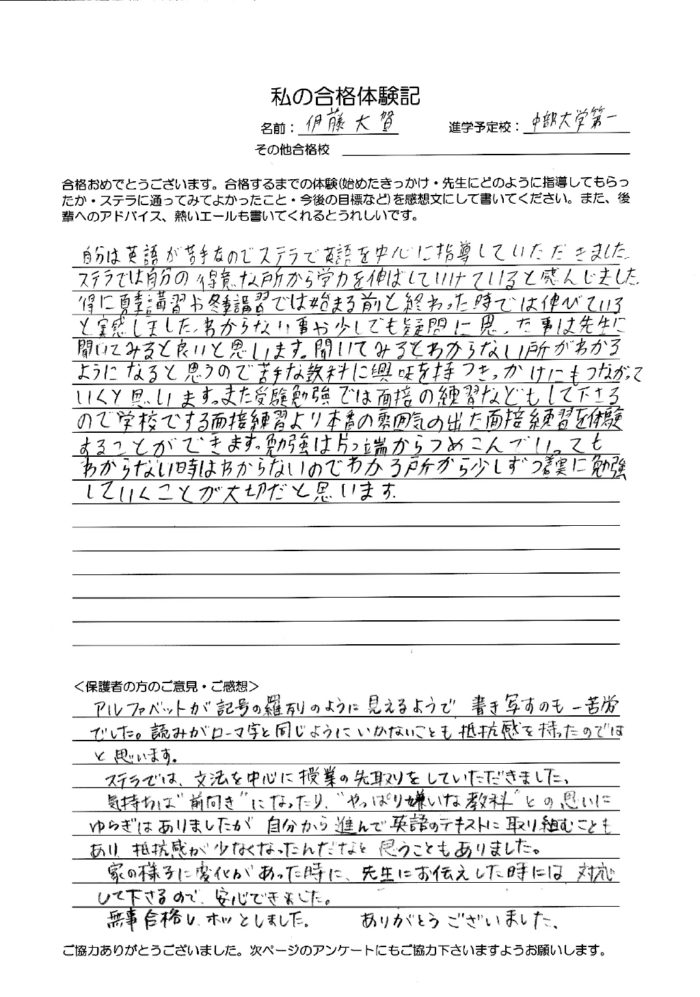 私の合格体験記
名前： 伊藤 大賀 進学予定校： 中部大学第一
その他合格校
合格おめでとうございます。合格するまでの体験(始めたきっかけ・先生にどのように指導してもらっ
たか・ステラに通ってみてよかったこと・今後の目標など)を感想文にして書いてください。また、後
輩へのアドバイス、熱いエールも書いてくれるとうれしいです。
自分は英語が苦手なのでステラで英語を中心に指導していただきました。
ステラでは自分の得意な所から学力を伸ばしていけていると感んじました
得に夏季講習や冬季講習では始まる前と終わった時では伸べている
と実感しました。わからない事や少しでも疑問に思った事は先生に
聞いてみると良いと思います。聞いてみるとわからない所がわかる
ようになると思うので苦手な教科に興味を持つきっかけにもつながって
いくと思います。また受験勉強では面接の練習などもして下さる
ので学校でする面接練習より本番の雰囲気の出た面接練習を体験
することができます。勉強は片っ端からつめこんでいっても
わからない時はわからないのでわかる所から少しずつ着実に勉強
していくことが大切だと思います.
＜保護者の方のご意見・ご感想＞
アルファベットが記号の羅列のように見えるようで 書き写すのも一苦労
でした。読みがローマ字と同じようにいかないことも抵抗感を持ったのでは
と思います。
ステラでは、文法を中心に授業の先取りをしていただきました。
気持ちは"前向き"になったり、"やっぱり嫌いな教科"との思いに
ゆらぎはありましたが 自分から進んで英語のテキストに取り組むことも
あり 抵抗感が少なくなったんだなと思うこともありました。
家の様子に変化があった時に、先生にお伝えした時には 対応
して下さるので、安心できました。
無事合格し、ホッとしました。 ありがとうございました。
ご協力ありがとうございました。次ページのアンケートにもご協力下さいますようお願いします。